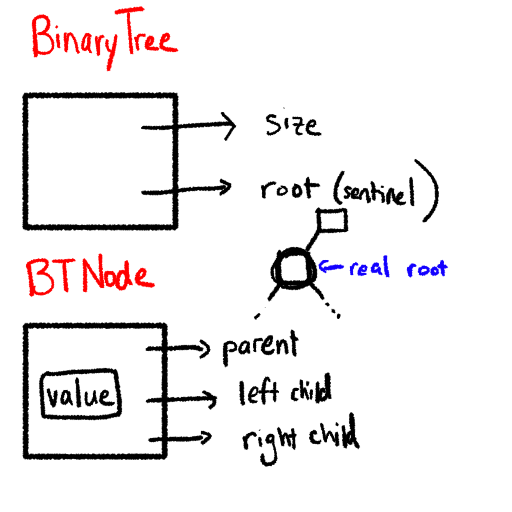 BinaryTree
size
root (sentinel)
real root
BTNode
value
parent
left child
right child